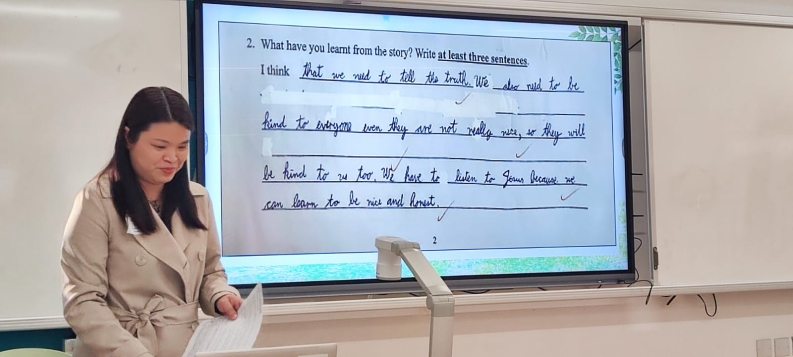 2. What have you learnt from the story? Write at least three sentences.
I think that we need to tell the truth. We also need to be
kind to everyone even they are not really nice, so they will
be kind to us too. We have to listen to Jesus because we
can learn to be nice and honest.
2